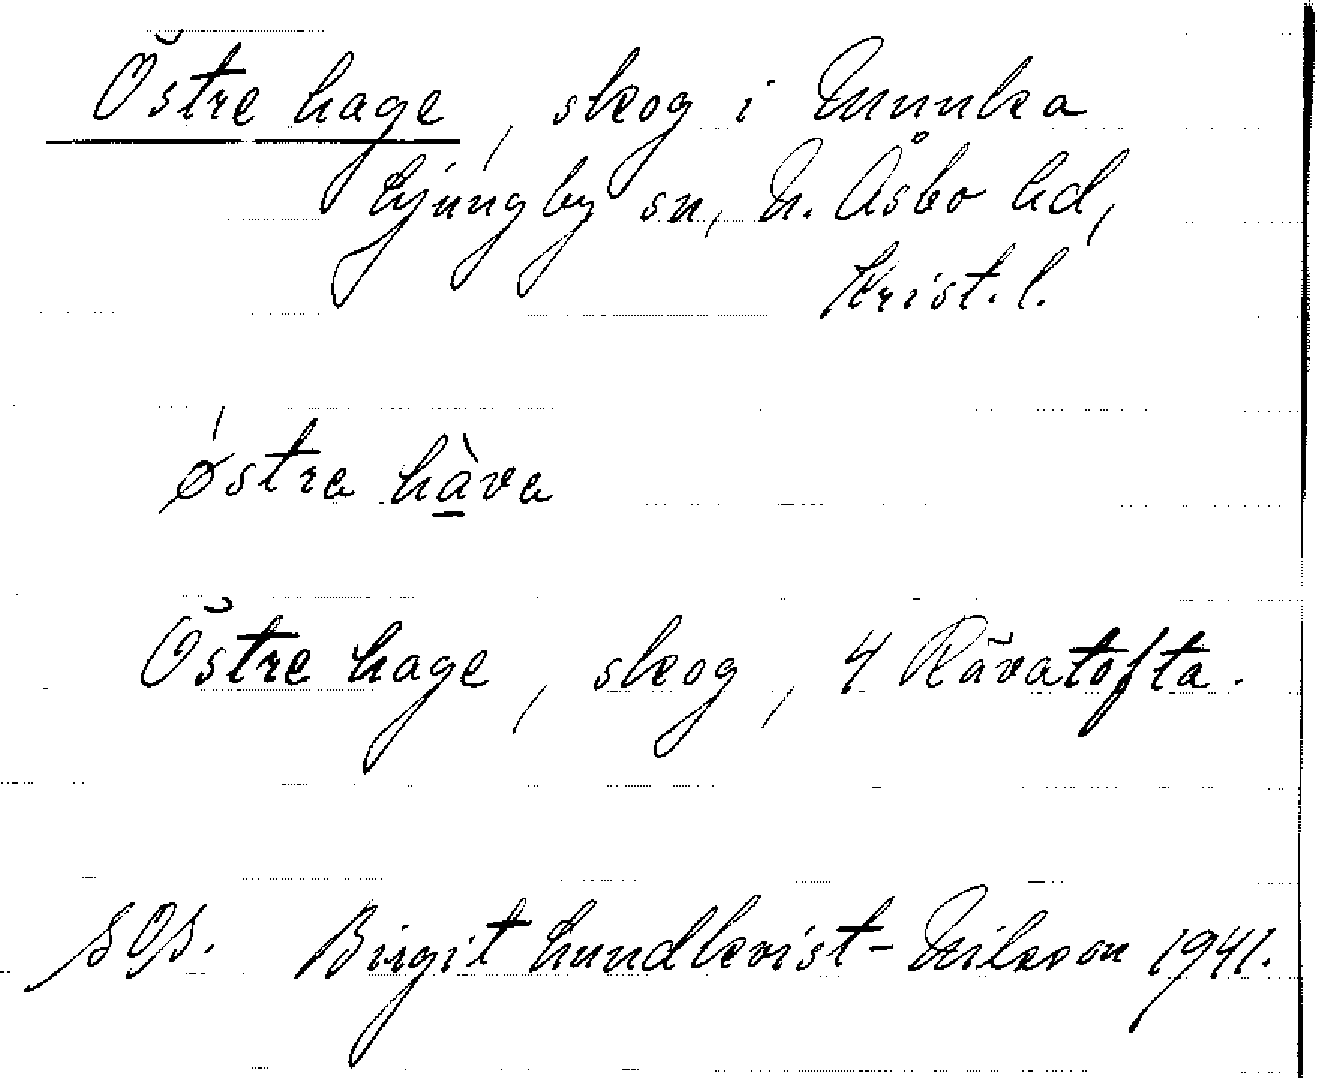 Östre hage, skog i Munka
Ljungby sn, N. Åsbo hd,
Krist. l.
ǿstra hàva
Östre hage, skog, 4 Rävatofta.
SOS. Birgit Lundkvist-Nilsson 1941.